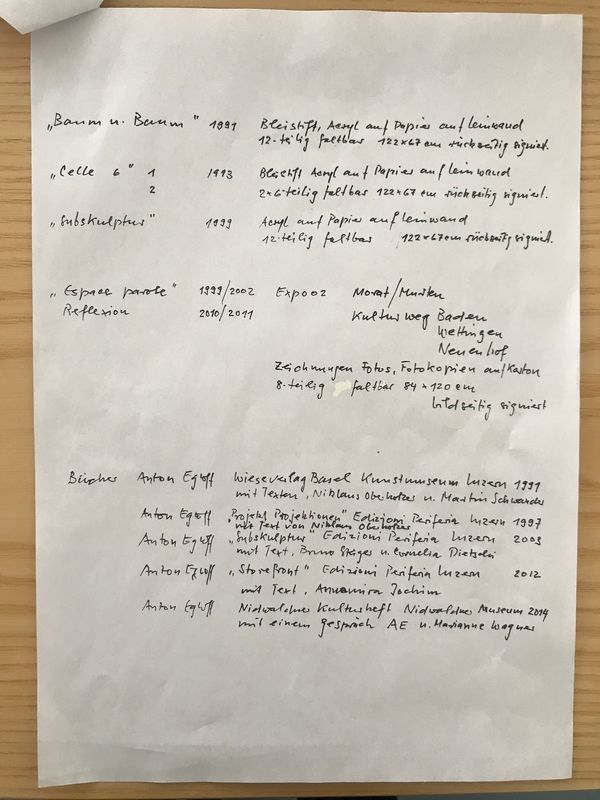 „Baum u. Baum" 1991 Bleistift, Acryl auf Papier auf Leinwand
12-teilig faltbar 122×67 cm rückseitig signiert.
„Celle 6" 1 1993 Bleistift Acryl auf Papier auf Leinwand
2 2×6-teilig faltbar 122×67 cm rückseitig signiert.
„Subskulptur" 1999 Acryl auf Papier auf Leinwand
12-teilig faltbar 122×67cm rückseitig signiert.
„Espace parole" 1999/2002 Expo02 Morat/Murten
Reflexion 2010/2011 Kulturweg Baden
Wettingen
Neuenhof
Zeichnungen Fotos, Fotokopien auf Karton
8-teilig faltbar 84×120 cm
bildseitig signiert
Bücher Anton Egloff Wieseverlag Basel Kunstmuseum Luzern 1991
mit Texten, Niklaus Oberholzer u. Martin Schwander
Anton Egloff „Projekt Projektionen" Edizioni Periferia Luzern 1997
mit Text von Niklaus Oberholzer
Anton Egloff „Subskulptur" Edizioni Periferia Luzern 2003
mit Text, Bruno Steiger u. Cornelia Dietschi
Anton Egloff „Storefront" Edizioni Periferia Luzern 2012
mit Text, Annamira Jochim
Anton Egloff Nidwaldner Kulturheft Nidwaldner Museum 2014
mit einem gespräch AE u. Marianne Wagner